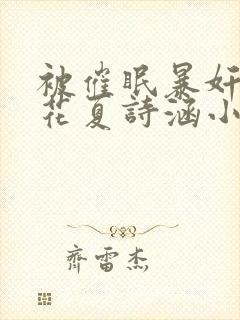 被催眠暴奸
花夏詩涵小
齊雷杰